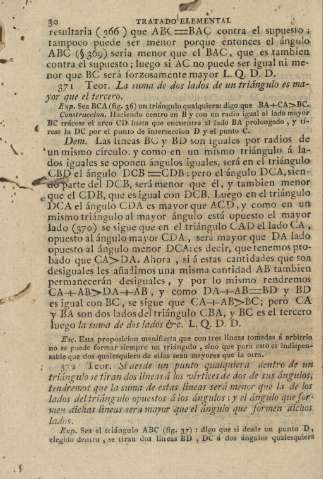 30 TRATADO ELEMENTAL
resultaria (366) que ABC=BAC contra el supuesto;
tampoco puede ser menor porque entonces el ángulo
ABC (§ 369) sería menor que el BAC, que es tambien
contra el supuesto; luego si AC no puede ser igual ni me-
nor que BC será forzosamente mayor L. Q. D. D.
371 Teor. La suma de dos lados de un triángulo es ma-
yor que el tercero.
Exp. Sea BCA (fig. 36) un triángulo qualquiera: digo que BA+CA>BC.
Construccion. Haciendo centro en B y con un radio igual al lado mayor
BC trácese el arco CD hasta que encuentre al lado BA prolongado, y tí-
rese la DC por el punto de interseccion D y el punto C.
Dem. Las líneas BC y BD son iguales por radios de
un mismo círculo, y como en un mismo triángulo á la-
dos iguales se oponen ángulos iguales, será en el triángulo
CBD el ángulo DCB=CDB; pero el ángulo DCA, sien-
do parte del DCB, será menor que él, y tambien menor
que el CDB, que es igual con DCB. Luego en el triángulo
DCA el ángulo CDA es mayor que ACD, y como en un
mismo triángulo al mayor ángulo está opuesto el mayor
lado (370) se sigue que en el triángulo CAD el lado CA,
opuesto al ángulo mayor CDA, será mayor que DA lado
opuesto al ángulo menor DCA: es decir, que tenemos pro-
bado que CA>DA. Ahora, si á estas cantidades que son
desiguales les añadimos una misma cantidad AB tambien
permanecerán desiguales, y por lo mismo tendremos
CA+AB>DA+AB, y como DA+AB=BD y BD
es igual con BC, se sigue que CA+AB>BC; pero CA
y BA son dos lados del triángulo CBA, y BC es el tercero
luego la suma de dos lados &c. L. Q. D. D.
Esc. Esta proposicion manifiesta que con tres líneas tomadas á arbitrio
no se puede formar siempre un triángulo, sino que para esto es indispen-
sable que dos qualesquiera de ellas sean mayores que la otra.
372 Teor. Si desde un punto qualquiera dentro de un
triángulo se tiran dos líneas á los vértices de dos de sus ángulos,
tendremos que la suma de estas líneas será menor que la de los
lados del triángulo opuestos á los ángulos; y el ángulo que for-
men dichas líneas será mayor que el ángulo que formen dichos
lados.
Exp. Sea el triángulo ABC (fig. 37): digo que si desde un punto D,
elegido dentro, se tiran dos líneas BD, DC á dos ángulos qualesquiera